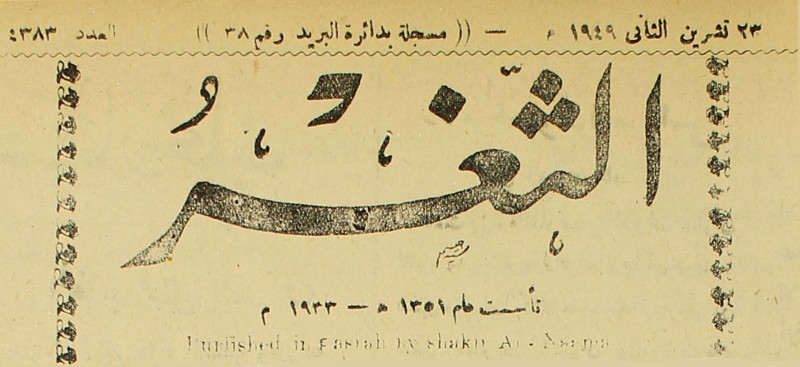 ٢٣ تشرين الثاني ١٩٤٩ م — (( مسجلة بدائرة البريد رقم ٣٨ )) العدد ٤٣٨٣
الثَّغْرُ
تأسست عام ١٣٥١ ه — ١٩٣٣ م
Published in Basrah by shakir An-Neema